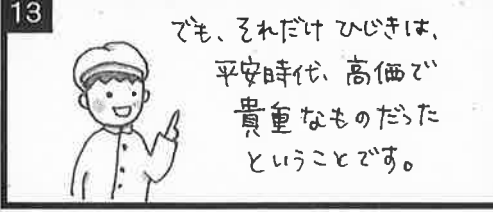 13
でも、それだけ ひじきは、
平安時代、高価で
貴重なものだった
ということです。